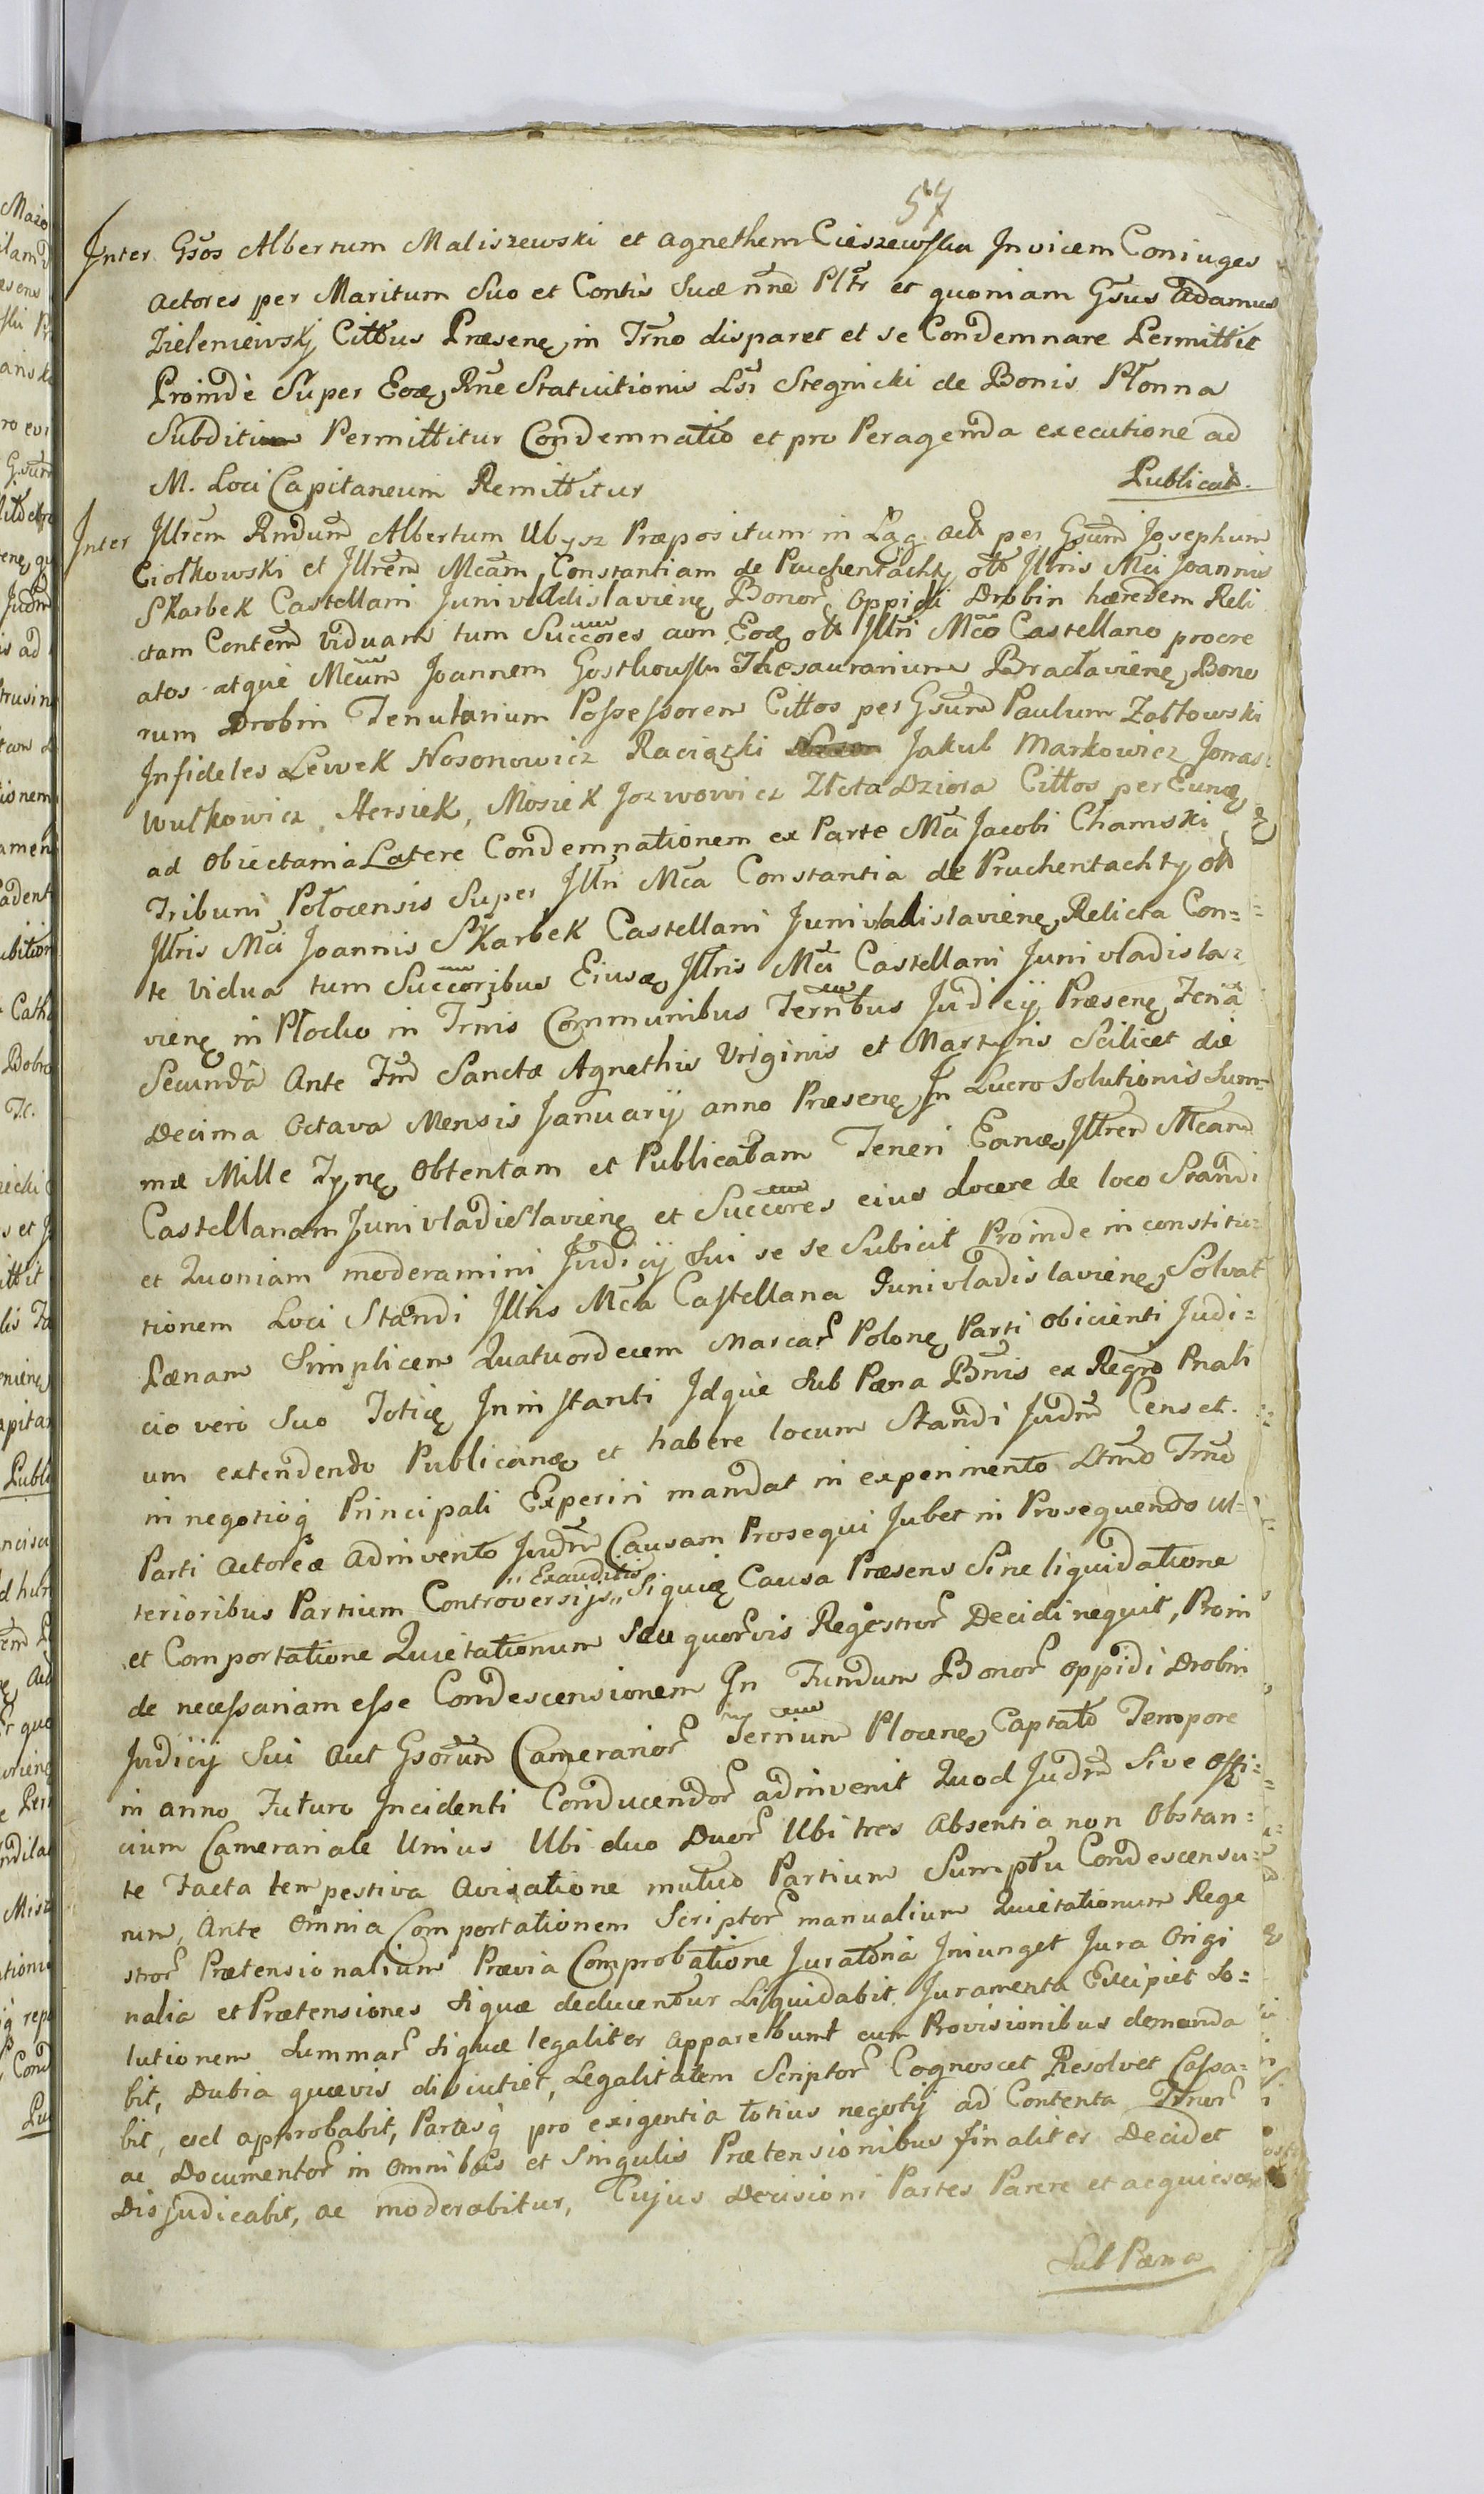 57
Inter Gsos Albertum Maliszewski et Agnethem Cieszewska Invicem Coniuges
Actores per Maritum Suo et Contis Suæ nne Pltr et quoniam Gsus Adamus
Zieleniewskj Cittus Præsenę in Trno disparet et se Condemnare Permittit
Proinde Super Eoæ Rne Statuitionis Lsi Stegnicki de Bonis Płonna
Subditi Permittitur Condemnatio et pro Peragenda executione ad
M. Loci Capitaneum Remittitur
Publicat.
Inter Jllrem Rndum Albertum Ubysz Præpositum in Lag. act per Gsum Josephum
Ciołkowski et Jllrem Mcam Constantiam de Pruchentachty olt Jllris Mci Joannis
Skarbek Castellani Junivladislavienę Bonor Oppidi Drobin hæredem Reli
ctam Contem Viduam tum Succores cum Eoæ olt Jllri Mco Castellano procre
atos atque Mcum Joannem Gosthouski Thesaurarium Bractavienę Bono
rum Drobin Tenutarium Possessorem Cittos per Gsum Paulum Zabłowski
Infideles Lewek Nosonowicz Raciążki Jakub Markowicz Jonas
Wulkowicz, Hersiek, Mosiek Jozwowicz Złota Dziora Cittos per Eunę
ad Obiectam a Latere Condemnationem ex Parte Mci Jacobi Chamski
Tribuni Płocensis Super Jllri Mca Constantia de Pruchentachty olt
Jllris Mci Joannis Skarbek Castellani Junivladislavienę Relicta Con=
te Vidua tum Succoribus Eiusæ Jllris Mci Castellani Junivladisla=
vienę in Płocko in Trnis Communibus Ternbus Judicij Præsenę Feria
Secunda Ante Fm Sanctæ Agnethis Virginis et Martyris Scilicet die
Decima Octava Mensis Januarij anno Præsenę In Lucro Solutionis Sum=
mæ Mille Tynę Obtentam et Publicatam Teneri Eanæ Jllrem Mcam
Castellanam Junivladislavienę et Succores eius docere de loco Standi
et Quoniam moderamini Judicij Sui se se Subicit Proinde in constitu=
tionem Loci Standi Jllris Mca Castellana Junivladislavienę Solvat
Pænam Simplicem Quatuordecem Marcar Polonę Parti Obicienti Judi=
cio vero Suo Totię In instanti Idque Sub Pæna Bnis ex Regro Pnali
um extendendo Publicanæ et habere locum Standi Judm Censet.
in negotioq Principali Experiri mandat in experimento Ltmo Trno
Parti Actoreæ Adinvento Judm Causam Prosequi Jubet in Prosequendo Ul=
terioribus Partium Controversijs " Exauditis " Siquię Causa Præsens Sine liquidatione
et Comportatione Quietationum seu quorvis Regestror Decidi nequit, Proin
de necessariam esse Condescensionem In Fundum Bonor Oppidi Drobin
Judicij Sui Aut Gsorum Camerarior Terrium Plocenę Captato Tempore
in anno Futuro Incidenti Conducendor adinvenit Quod Judm Sive Offi=
cium Camerariale Unius Ubi duo Duor Ubi tres Absentia non Obstan=
te Facta tempestiva Avisatione mutuo Partium Sumptu Condescensu=
rum, Ante Omnia Comportationem Scriptor manualium Quietationum Rege
stror Prætensionalium Prævia Comprobatione Juratoria Iniunget Jura Origi
nalia et Prætensiones siquæ deducentur Liquidabit Juramenta Excipiet So=
lutionem Summar siquæ legaliter Apparebunt cum Provisionibus demanda
bit, Dubia quævis discutiet, Legalitatem Scriptor Cognoscet Resolvet Cassa=
bit, vel approbabit, Partesq pro exigentia totius negotij ad Contenta Trnor
ac Documentor in Omnibus et Singulis Prætensionibus finaliter Decidet
Disjudicabit, ac moderabitur, Cujus Decisioni Partes Parere et acquiescere
Sub Pæna